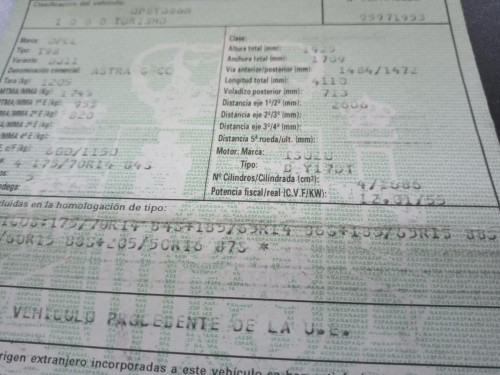 Clasificación del vehículo:
1000 TURISMO
Marca: OPEL
Clase:
Tipo: T98
Altura total (mm): 1425
Variante:
Anchura total (mm): 1709
Denominación comercial: ASTRA G CC
Vía anterior/posterior (mm): 1484/1472
Tara (kg): 1205
Longitud total (mm): 4110
MTMA/MMA (kg): 1745
Voladizo posterior (mm): 713
MTMA/MMA 1º E (kg): 955
Distancia eje 1º/2º (mm): 2606
MMA 2º E (kg): 820
Distancia eje 2º/3º (mm):
MMA 3º E (kg):
Distancia eje 3º/4º (mm):
MMA 4º E (kg):
Distancia 5ª rueda/últ. (mm):
680/1150
Motor: Marca: ISUZU
4 175/70R14 84S
Tipo: D Y17DT
5
Nº Cilindros/Cilindrada (cm³): 4/1686
Potencia fiscal/real (C.V.F/KW): 12,01/55
cluidas en la homologación de tipo:
175/70R14 84S+185/65R14 86S+185/65R15 88S
/60R15 88S+205/50R16 87S *
VEHICULO PROCEDENTE DE LA U.E.
rigen extranjero incorporadas a este vehículo en